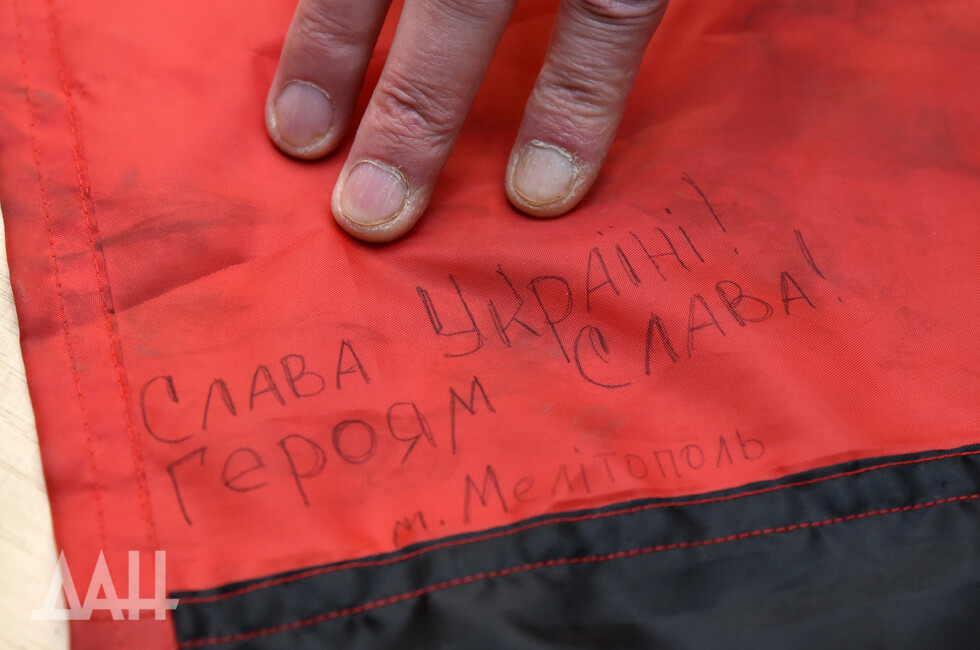 Слава Україні!
Героям Слава!
м. Мелітополь
ДАН